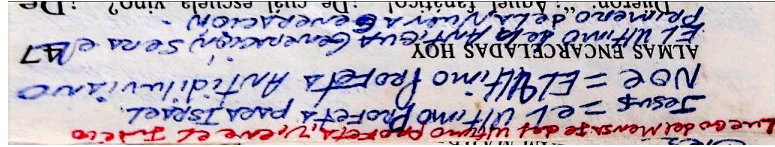 Luego del Mensaje del ultimo Profeta, viene el Juicio
Jesus = el ultimo Profeta para Israel.
NOE = EL Ultimo Profeta Antidiluviano
ALMAS ENCARCELADAS HOY 47
EL ultimo de la Antigua Generacion, Sera el
Primero de la Nueva Generacion.
Dijeron: „¡Aquel fanático! ¿De cuál escuela vino? ¿De